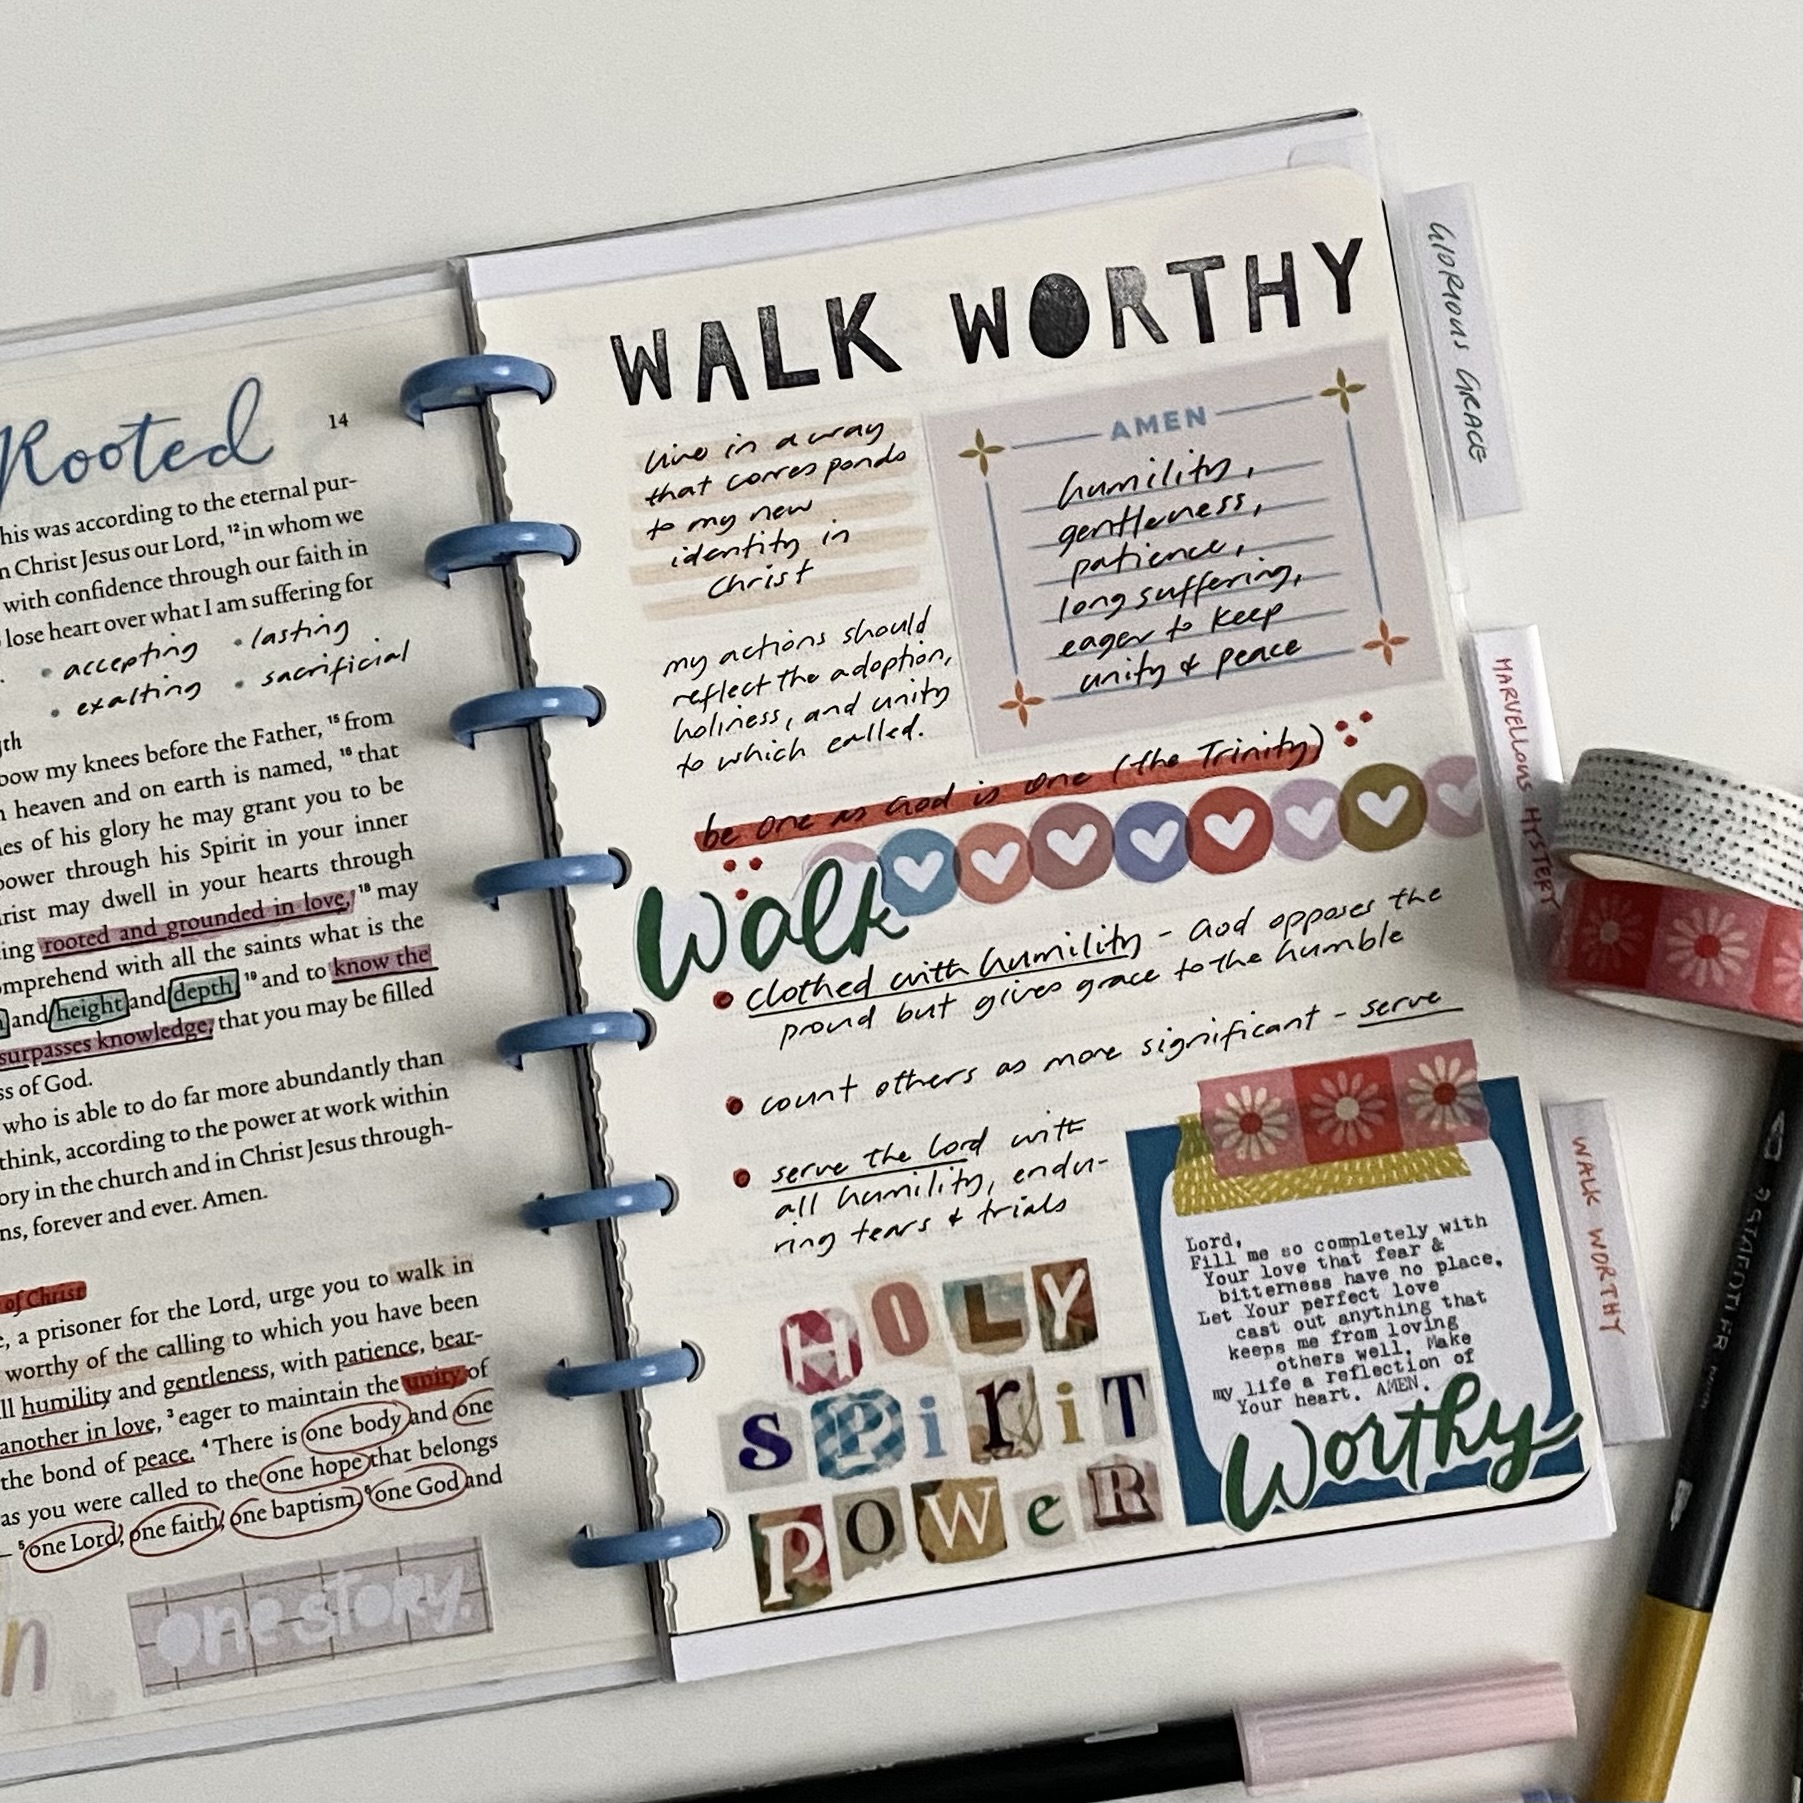 Rooted
14
his was according to the eternal pur-
n Christ Jesus our Lord, 12 in whom we
with confidence through our faith in
lose heart over what I am suffering for
• accepting • lasting
• exalting • sacrificial
gth
bow my knees before the Father, 15 from
heaven and on earth is named, 16 that
es of his glory he may grant you to be
power through his Spirit in your inner
rist may dwell in your hearts through
ing rooted and grounded in love, 18 may
omprehend with all the saints what is the
and height and depth, 19 and to know the
surpasses knowledge, that you may be filled
ss of God.
who is able to do far more abundantly than
think, according to the power at work within
ory in the church and in Christ Jesus through-
ns, forever and ever. Amen.
of Christ
, a prisoner for the Lord, urge you to walk in
worthy of the calling to which you have been
ll humility and gentleness, with patience, bear-
another in love, 3 eager to maintain the unity of
the bond of peace. 4 There is one body and one
as you were called to the one hope that belongs
5 one Lord, one faith, one baptism, 6 one God and
n
one story.
WALK WORTHY
live in a way
that corresponds
to my new
identity in
Christ
my actions should
reflect the adoption,
holiness, and unity
to which called.
AMEN
humility,
gentleness,
patience,
long suffering,
eager to keep
unity & peace
be one as God is one (the Trinity)
Walk
• clothed with humility - God opposes the
proud but gives grace to the humble
• count others as more significant - serve
• serve the Lord with
all humility, endu-
ring tears & trials
HOLY
SPiriT
POWeR
Lord,
Fill me so completely with
Your love that fear &
bitterness have no place.
Let Your perfect love
cast out anything that
keeps me from loving
others well. Make
my life a reflection of
Your heart. AMEN.
Worthy
GLORIOUS GRACE
MARVELLOUS MYSTERY
WALK WORTHY